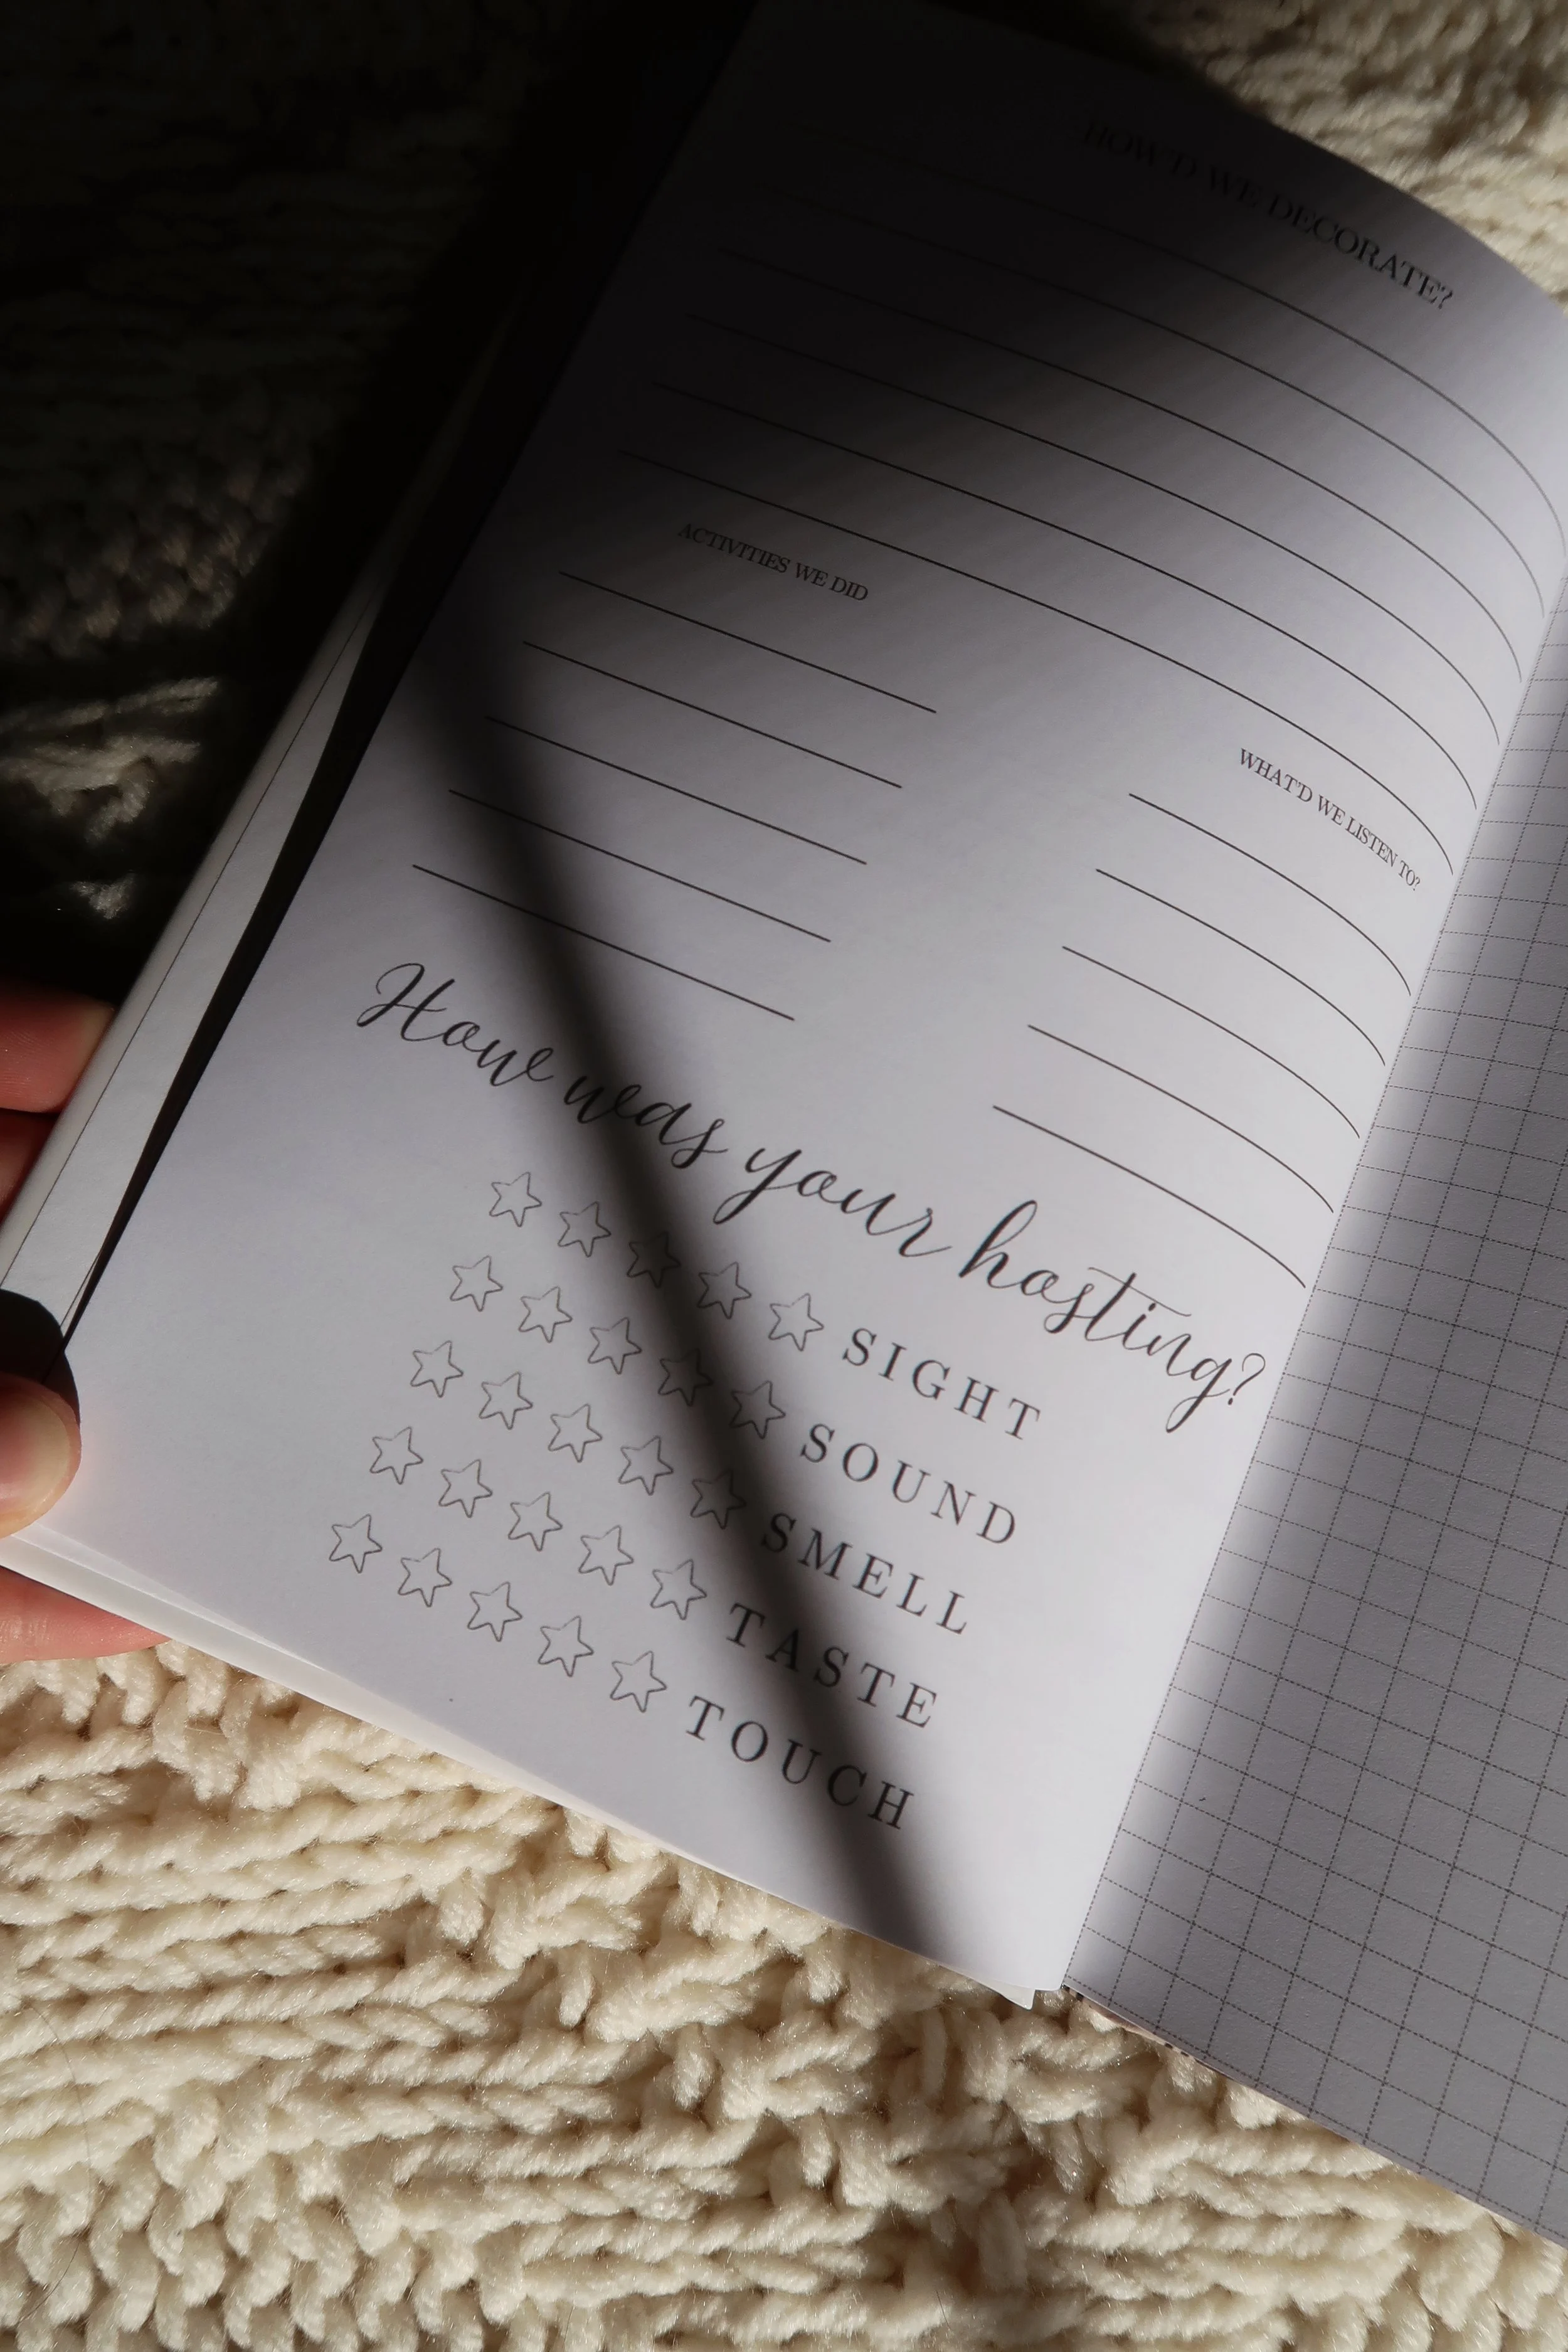 HOW'D WE DECORATE?
ACTIVITIES WE DID
WHAT'D WE LISTEN TO?
How was your hosting?
SIGHT
SOUND
SMELL
TASTE
TOUCH